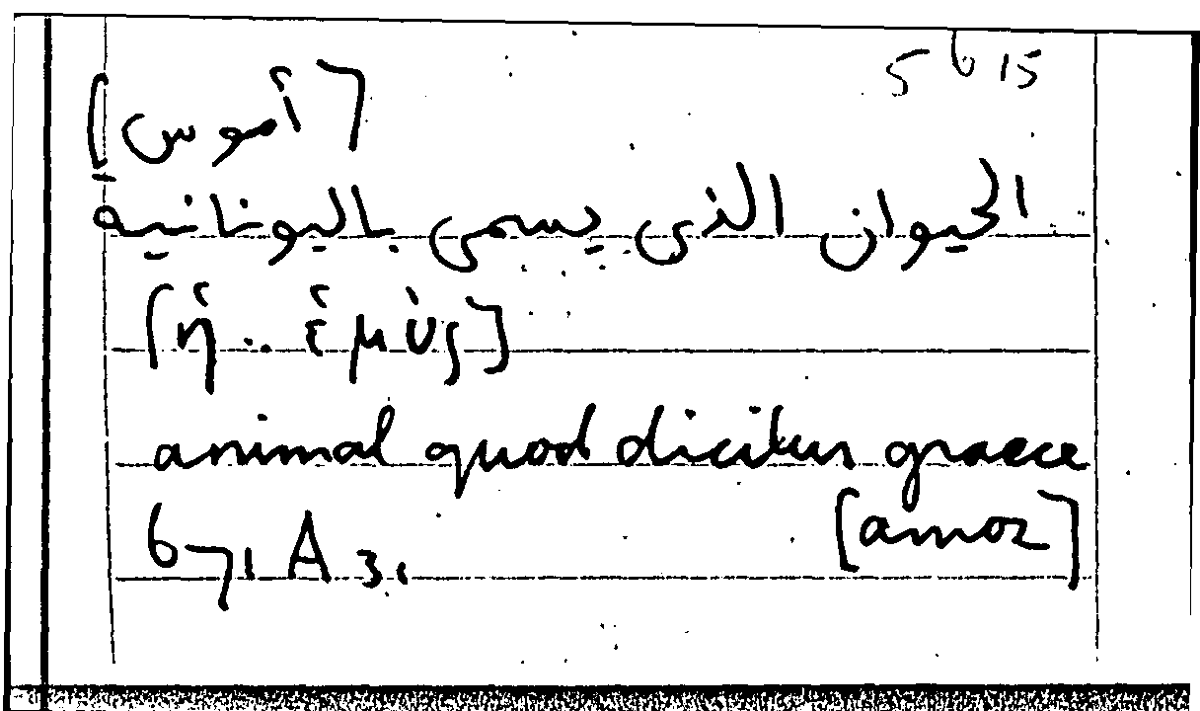 5615
[أموس]
الحيوان الذى يسمى باليونانية
[ἡ .. ἑμὺς]
animal quod dicitur graece
671 A 31 [amoz]